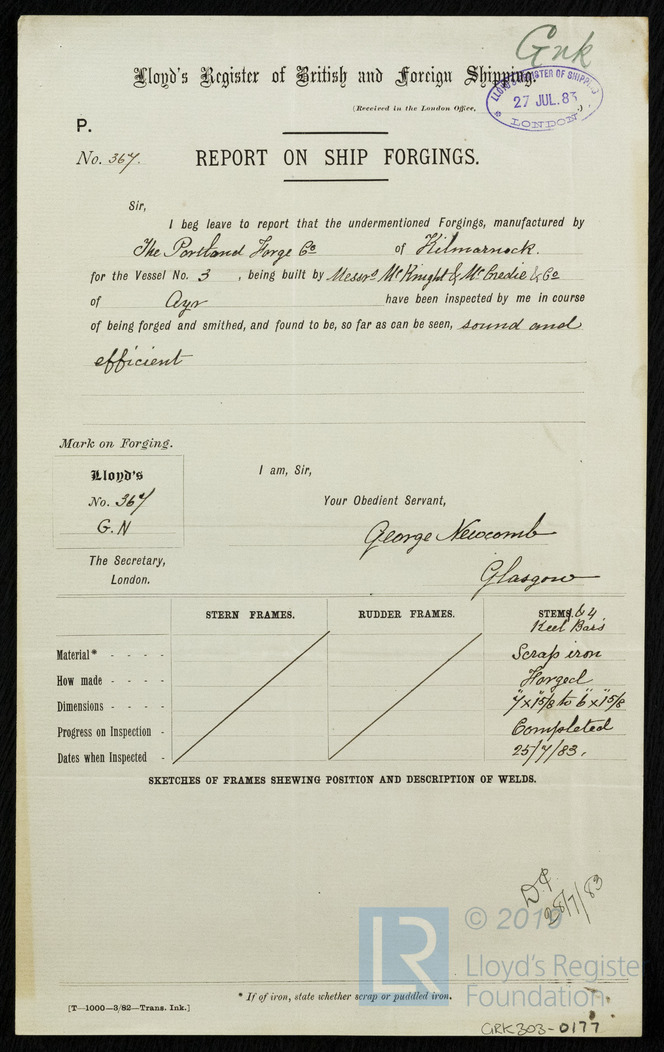 Gnk
Lloyd's Register of British and Foreign Shipping.
(Received in the London Office,
LLOYD'S REGISTER OF SHIPPING
27 JUL. 83
LONDON
P.
No. 367.
REPORT ON SHIP FORGINGS.
Sir,
I beg leave to report that the undermentioned Forgings, manufactured by
The Portland Forge Co of Kilmarnock.
for the Vessel No. 3, being built by Messrs McKnight & McCredie & Co
of Ayr have been inspected by me in course
of being forged and smithed, and found to be, so far as can be seen, sound and
efficient
Mark on Forging.
Lloyd's
No. 367
G.N
I am, Sir,
Your Obedient Servant,
George Newcomb
Glasgow
The Secretary,
London.
STERN FRAMES. RUDDER FRAMES. STEMS. & 4
Keel Bars
Material* - - - - Scrap iron
How made - - - - Forged
Dimensions - - - - 7"x1 5/8 to 6"x1 5/8
Progress on Inspection - Completed
Dates when Inspected - 25/7/83.
SKETCHES OF FRAMES SHEWING POSITION AND DESCRIPTION OF WELDS.
28/7/83
© 2019
LR
Lloyd's Register
Foundation
* If of iron, state whether scrap or puddled iron.
[T—1000—3/82—Trans. Ink.]
GRK303-0177